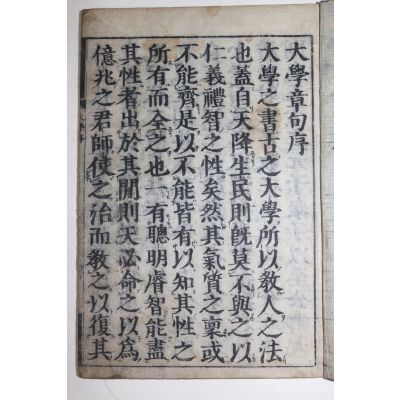 大學章句序
大學之書古之大學所以教人之法
也蓋自天降生民則旣莫不與之以
仁義禮智之性矣然其氣質之稟或
不能齊是以不能皆有以知其性之
所有而全之也一有聰明睿智能盡
其性者出於其閒則天必命之以爲
億兆之君師使之治而教之以復其